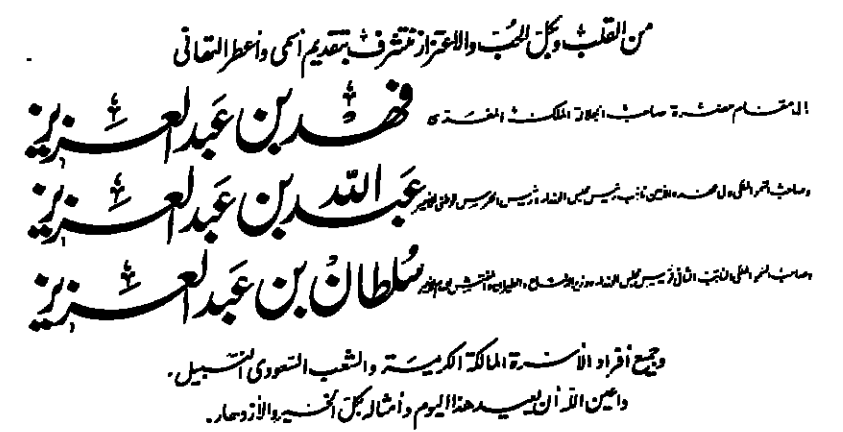 من القلب وبكل الحب والاعتزاز نتشرف بتقديم أسمى وأعطر التهاني
إلى مقام حضرة صاحب الجلالة الملك المفدى فهد بن عبد العزيز
وصاحب السمو الملكي ولي عهده الأمين نائب رئيس مجلس الوزراء ورئيس الحرس الوطني الأمير عبد الله بن عبد العزيز
وصاحب السمو الملكي النائب الثاني لرئيس مجلس الوزراء ووزير الدفاع والطيران والمفتش العام الأمير سلطان بن عبد العزيز
وجميع أفراد الأسرة المالكة الكريمة والشعب السعودي النبيل.
داعين الله أن يعيد هذا اليوم وأمثاله بكل الخير والازدهار.